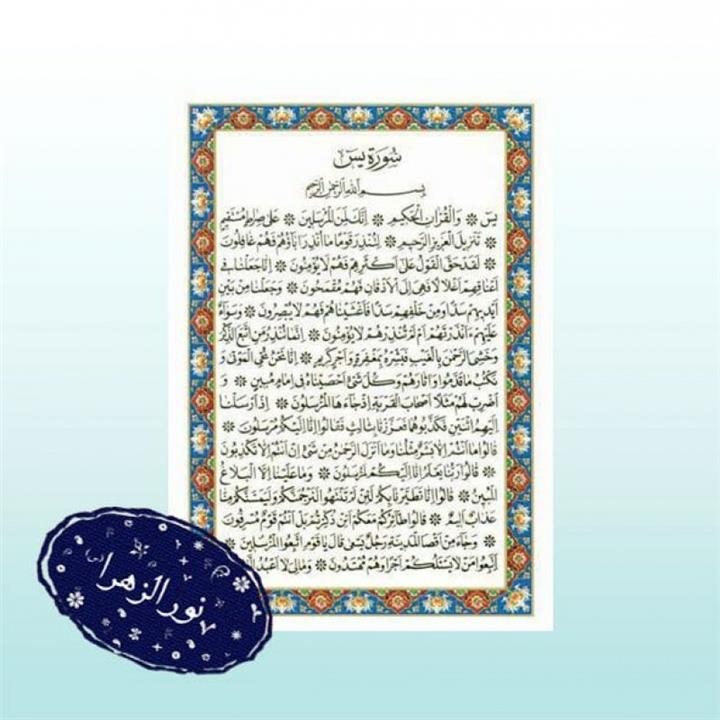 سُورَة يس
بِسْمِ اللهِ الرَّحْمٰنِ الرَّحِيمِ
يس ❊ وَالْقُرْاٰنِ الْحَكِيمِ ❊ اِنَّكَ لَمِنَ الْمُرْسَلِينَ ❊ عَلٰى صِرَاطٍ مُسْتَقِيمٍ
❊ تَنْزِيلَ الْعَزِيزِ الرَّحِيمِ ❊ لِتُنْذِرَ قَوْمًا مَا اُنْذِرَ اٰبَاؤُهُمْ فَهُمْ غَافِلُونَ
❊ لَقَدْ حَقَّ الْقَوْلُ عَلٰى اَكْثَرِهِمْ فَهُمْ لَا يُؤْمِنُونَ ❊ اِنَّا جَعَلْنَا فِى
اَعْنَاقِهِمْ اَغْلَالًا فَهِىَ اِلَى الْاَذْقَانِ فَهُمْ مُقْمَحُونَ ❊ وَجَعَلْنَا مِنْ بَيْنِ
اَيْدِيهِمْ سَدًّا وَمِنْ خَلْفِهِمْ سَدًّا فَاَغْشَيْنَاهُمْ فَهُمْ لَا يُبْصِرُونَ ❊ وَسَوَاءٌ
عَلَيْهِمْ ءَاَنْذَرْتَهُمْ اَمْ لَمْ تُنْذِرْهُمْ لَا يُؤْمِنُونَ ❊ اِنَّمَا تُنْذِرُ مَنِ اتَّبَعَ الذِّكْرَ
وَخَشِىَ الرَّحْمٰنَ بِالْغَيْبِ فَبَشِّرْهُ بِمَغْفِرَةٍ وَاَجْرٍ كَرِيمٍ ❊ اِنَّا نَحْنُ نُحْىِ الْمَوْتٰى وَ
نَكْتُبُ مَا قَدَّمُوا وَاٰثَارَهُمْ وَكُلَّ شَىْءٍ اَحْصَيْنَاهُ فِى اِمَامٍ مُبِينٍ ❊ وَ
اضْرِبْ لَهُمْ مَثَلًا اَصْحَابَ الْقَرْيَةِ اِذْ جَاءَهَا الْمُرْسَلُونَ ❊ اِذْ اَرْسَلْنَا
اِلَيْهِمُ اثْنَيْنِ فَكَذَّبُوهُمَا فَعَزَّزْنَا بِثَالِثٍ فَقَالُوا اِنَّا اِلَيْكُمْ مُرْسَلُونَ ❊
قَالُوا مَا اَنْتُمْ اِلَّا بَشَرٌ مِثْلُنَا وَمَا اَنْزَلَ الرَّحْمٰنُ مِنْ شَىْءٍ اِنْ اَنْتُمْ اِلَّا تَكْذِبُونَ
❊ قَالُوا رَبُّنَا يَعْلَمُ اِنَّا اِلَيْكُمْ لَمُرْسَلُونَ ❊ وَمَا عَلَيْنَا اِلَّا الْبَلَاغُ
الْمُبِينُ ❊ قَالُوا اِنَّا تَطَيَّرْنَا بِكُمْ لَئِنْ لَمْ تَنْتَهُوا لَنَرْجُمَنَّكُمْ وَلَيَمَسَّنَّكُمْ مِنَّا
عَذَابٌ اَلِيمٌ ❊ قَالُوا طَائِرُكُمْ مَعَكُمْ اَئِنْ ذُكِّرْتُمْ بَلْ اَنْتُمْ قَوْمٌ مُسْرِفُونَ
❊ وَجَاءَ مِنْ اَقْصَا الْمَدِينَةِ رَجُلٌ يَسْعٰى قَالَ يَا قَوْمِ اتَّبِعُوا الْمُرْسَلِينَ ❊
اِتَّبِعُوا مَنْ لَا يَسْئَلُكُمْ اَجْرًا وَهُمْ مُهْتَدُونَ ❊ وَمَا لِىَ لَا اَعْبُدُ
نورالزهرا